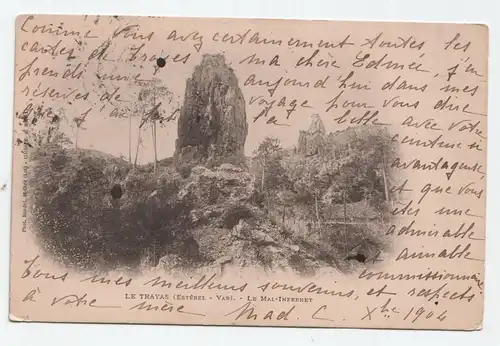 Comme vous avez certainement toutes les
cartes de Trayas ma chère Edmée, j'en
prends une aujourd'hui dans mes
réserves de voyage pour vous dire
que
belle avec votre
ceinture si
avantageuse,
et que vous
êtes une
admirable
et aimable
commissionnaire
Tous mes meilleurs souvenirs, et respects
à votre mère Mad. C. Xbre 1904
LE TRAYAS (ESTÉREL - VAR). - LE MAL-INFERNET